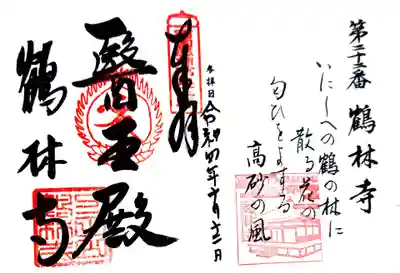 第二十二番 鶴林寺
いにしへの鶴の林に
散る花の
匂ひをよする
高砂の風
奉拝
参拝日 令和四年十月十二日
醫王殿
鶴林寺